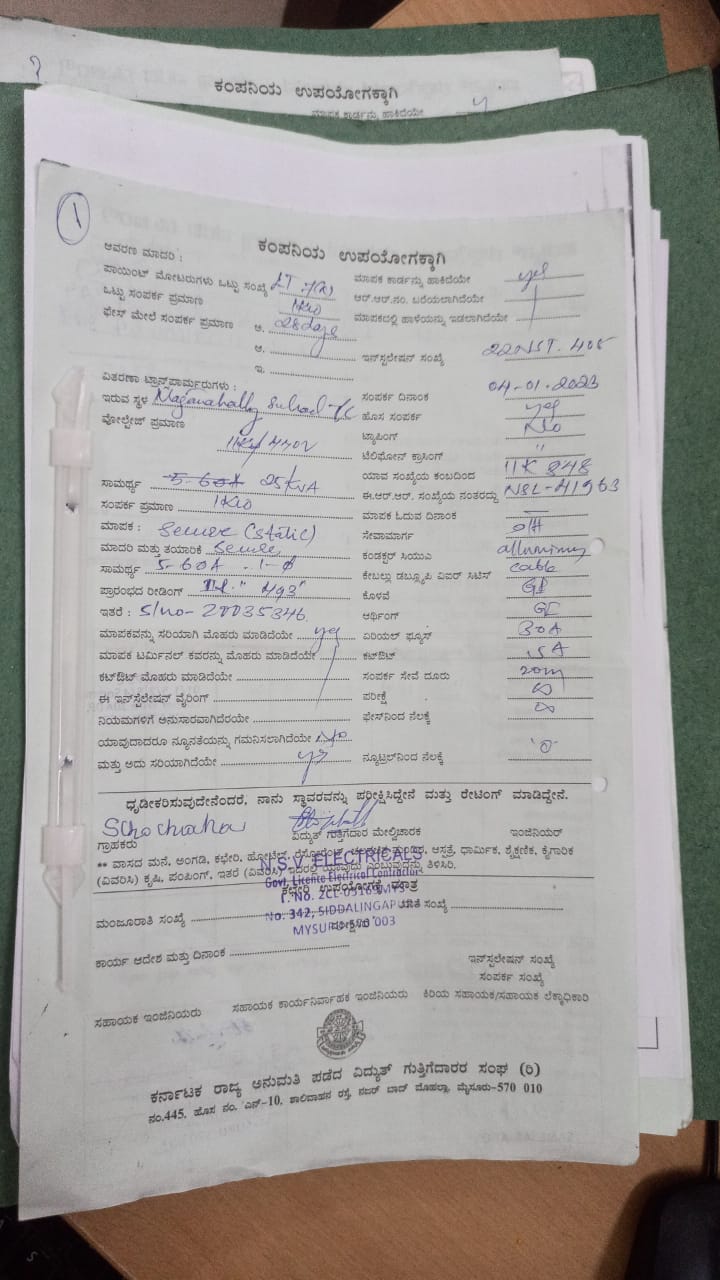 ಕಂಪನಿಯ ಉಪಯೋಗಕ್ಕಾಗಿ
ಮಾಪಕ ಕಾರ್ಡನ್ನು ಹಾಕಿದೆಯೇ y
1
ಕಂಪನಿಯ ಉಪಯೋಗಕ್ಕಾಗಿ
ಆವರಣ ಮಾದರಿ :
ಪಾಯಿಂಟ್ ಮೋಟರುಗಳು ಒಟ್ಟು ಸಂಖ್ಯೆ LT ಮಾಪಕ ಕಾರ್ಡನ್ನು ಹಾಕಿದೆಯೇ yes
ಒಟ್ಟು ಸಂಪರ್ಕ ಪ್ರಮಾಣ 1KW ಆರ್.ಆರ್.ನಂ. ಬರೆಯಲಾಗಿದೆಯೇ
ಫೇಸ್ ಮೇಲೆ ಸಂಪರ್ಕ ಪ್ರಮಾಣ ಅ. 28 days ಮಾಪಕದಲ್ಲಿ ಹಾಳೆಯನ್ನು ಇಡಲಾಗಿದೆಯೇ
ಆ. ಇನ್‌ಸ್ಟಲೇಷನ್ ಸಂಖ್ಯೆ 22NST. 405
ಇ.
ವಿತರಣಾ ಟ್ರಾನ್ಸ್‌ಫಾರ್ಮರುಗಳು : ಸಂಪರ್ಕ ದಿನಾಂಕ 04-01-2023
ಇರುವ ಸ್ಥಳ Naganahally School TC ಹೊಸ ಸಂಪರ್ಕ yes
ವೋಲ್ಟೇಜ್ ಪ್ರಮಾಣ 11KV/440V ಟ್ಯಾಪಿಂಗ್ No
ಟೆಲಿಫೋನ್ ಕ್ರಾಸಿಂಗ್ "
ಸಾಮರ್ಥ್ಯ 5-60A 25KVA ಯಾವ ಸಂಖ್ಯೆಯ ಕಂಬದಿಂದ 11K 848
ಸಂಪರ್ಕ ಪ್ರಮಾಣ 1KW ಈ.ಆರ್.ಆರ್. ಸಂಖ್ಯೆಯ ನಂತರದ್ದು NSL-41963
ಮಾಪಕ : Secure (Static) ಮಾಪಕ ಓದುವ ದಿನಾಂಕ —
ಮಾದರಿ ಮತ್ತು ತಯಾರಿಕೆ Secure ಸೇವಾಮಾರ್ಗ O/H
ಸಾಮರ್ಥ್ಯ 5-60A . 1-ϕ ಕಂಡಕ್ಟರ್ ಸಿಯುವಿ alluminiumy
ಪ್ರಾರಂಭದ ರೀಡಿಂಗ್ 493" ಕೇಬಲ್ಲು ಡಬ್ಲ್ಯೂಪಿ ವಿಐರ್ ಸಿಟಿಸ್ cable
ಇತರೆ : S/no - 20035346 ಕೊಳವೆ GI
ಆರ್ಥಿಂಗ್ GI
ಮಾಪಕವನ್ನು ಸರಿಯಾಗಿ ಮೊಹರು ಮಾಡಿದೆಯೇ yes ಏರಿಯಲ್ ಫ್ಯೂಸ್ 30A
ಮಾಪಕ ಟರ್ಮಿನಲ್ ಕವರನ್ನು ಮೊಹರು ಮಾಡಿದೆಯೇ ಕಟ್‌ಔಟ್ 15A
ಕಟ್‌ಔಟ್ ಮೊಹರು ಮಾಡಿದೆಯೇ ಸಂಪರ್ಕ ಸೇವೆ ದೂರು 20m
ಈ ಇನ್‌ಸ್ಟಲೇಷನ್ ವೈರಿಂಗ್ ಪರೀಕ್ಷೆ ∞
ನಿಯಮಗಳಿಗೆ ಅನುಸಾರವಾಗಿದೆರಯೇ ಫೇಸ್‌ನಿಂದ ನೆಲಕ್ಕೆ ∞
ಯಾವುದಾದರೂ ನ್ಯೂನತೆಯನ್ನು ಗಮನಿಸಲಾಗಿದೆಯೇ No
ಮತ್ತು ಅದು ಸರಿಯಾಗಿದೆಯೇ yes ನ್ಯೂಟ್ರಲ್‌ನಿಂದ ನೆಲಕ್ಕೆ '0'
ಧೃಡೀಕರಿಸುವುದೇನೆಂದರೆ, ನಾನು ಸ್ಥಾವರವನ್ನು ಪರೀಕ್ಷಿಸಿದ್ದೇನೆ ಮತ್ತು ರೇಟಿಂಗ್ ಮಾಡಿದ್ದೇನೆ.
ಗ್ರಾಹಕರು ವಿದ್ಯುತ್ ಗುತ್ತಿಗೆದಾರ ಮೇಲ್ವಿಚಾರಕ ಇಂಜಿನಿಯರ್
** ವಾಸದ ಮನೆ, ಅಂಗಡಿ, ಕಛೇರಿ, ಹೋಟೆಲ್, ಆಸ್ಪತ್ರೆ, ಧಾರ್ಮಿಕ, ಶೈಕ್ಷಣಿಕ, ಕೈಗಾರಿಕ
(ವಿವರಿಸಿ) ಕೃಷಿ, ಪಂಪಿಂಗ್, ಇತರೆ (ವಿವರಿಸಿ) ಇದರಲ್ಲಿ ಯಾವುದು ಎಂಬುವುದನ್ನು ತಿಳಿಸಿರಿ.
N.S.V. ELECTRICALS
Govt. Licence Electrical Contractor
No. 342, SIDDALINGAPURA
MYSURU-570 003
ಕಛೇರಿ ಉಪಯೋಗಕ್ಕೆ ಮಾತ್ರ
ಮಂಜೂರಾತಿ ಸಂಖ್ಯೆ ಖಾತೆ ಸಂಖ್ಯೆ
ಕಾರ್ಯ ಆದೇಶ ಮತ್ತು ದಿನಾಂಕ
ಇನ್‌ಸ್ಟಲೇಷನ್ ಸಂಖ್ಯೆ
ಸಂಪರ್ಕ ಸಂಖ್ಯೆ
ಸಹಾಯಕ ಇಂಜಿನಿಯರು ಸಹಾಯಕ ಕಾರ್ಯನಿರ್ವಾಹಕ ಇಂಜಿನಿಯರು ಕಿರಿಯ ಸಹಾಯಕ/ಸಹಾಯಕ ಲೆಕ್ಕಾಧಿಕಾರಿ
ಕರ್ನಾಟಕ ರಾಜ್ಯ ಅನುಮತಿ ಪಡೆದ ವಿದ್ಯುತ್ ಗುತ್ತಿಗೆದಾರರ ಸಂಘ (ರಿ)
ನಂ.445, ಹೊಸ ನಂ. ಎನ್-10, ಶಾಲಿವಾಹನ ರಸ್ತೆ, ನಜರ್ ಬಾದ್ ಮೊಹಲ್ಲಾ, ಮೈಸೂರು-570 010